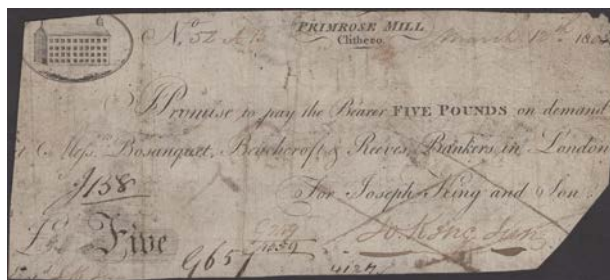 PRIMROSE MILL
No. 52
Clithero, March 12th 180
I Promise to pay the Bearer FIVE POUNDS on demand
at Messrs. Bosanquet, Beachcroft & Reeves, Bankers in London
J158
For Joseph King and Son
Five
Jo. King Junr
9657
4127